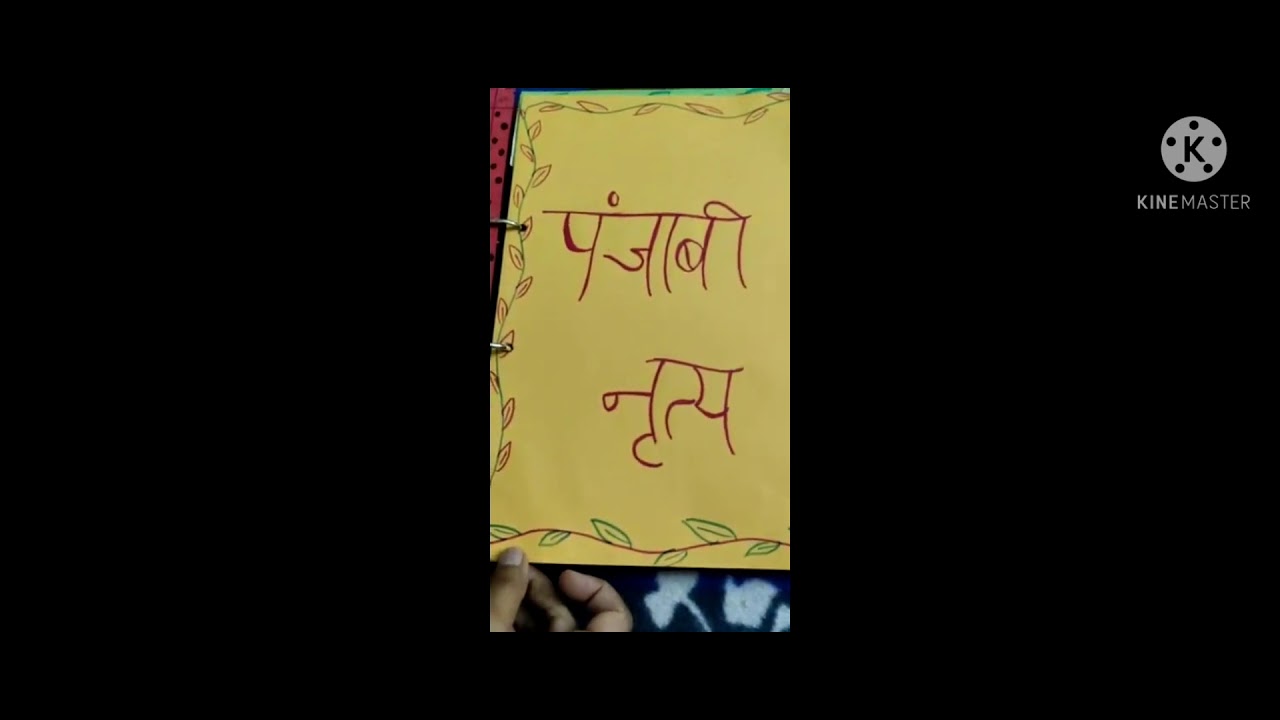 पंजाबी
नृत्य
K
KINEMASTER